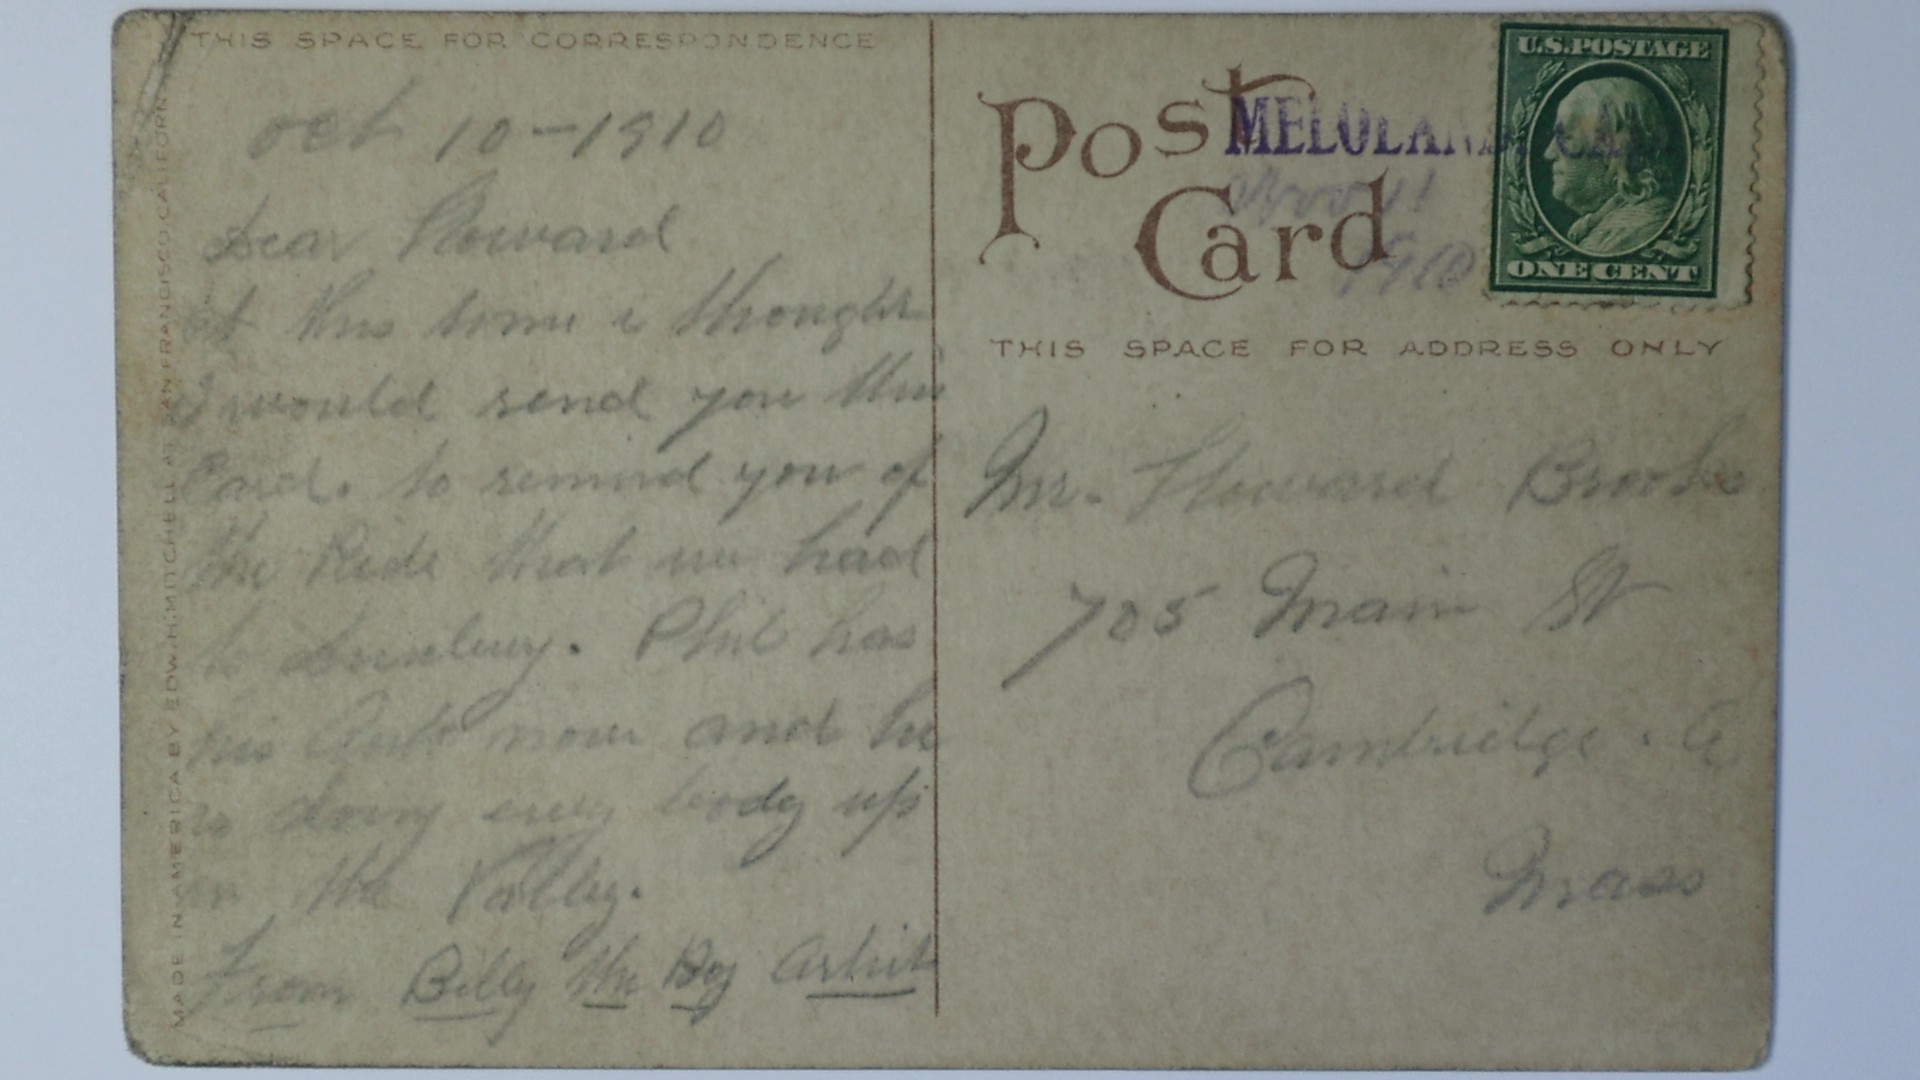 THIS SPACE FOR CORRESPONDENCE
oct 10-1910
Dear Howard
at this time i thought
I would send you this
Card. to remind you of
the Ride that we had
to Duxbury. Phil has
his Auto now and he
is doing every body up
in the Valley.
From Billy the Boy Artist
MADE IN AMERICA BY EDW. H. MITCHELL AT SAN FRANCISCO, CALIFORN
Post Card
MELOLAND, CAL.
Nov 11
1910
U.S. POSTAGE
ONE CENT
THIS SPACE FOR ADDRESS ONLY
Mr. Howard Brooks
705 Main St
Cambridge.
Mass